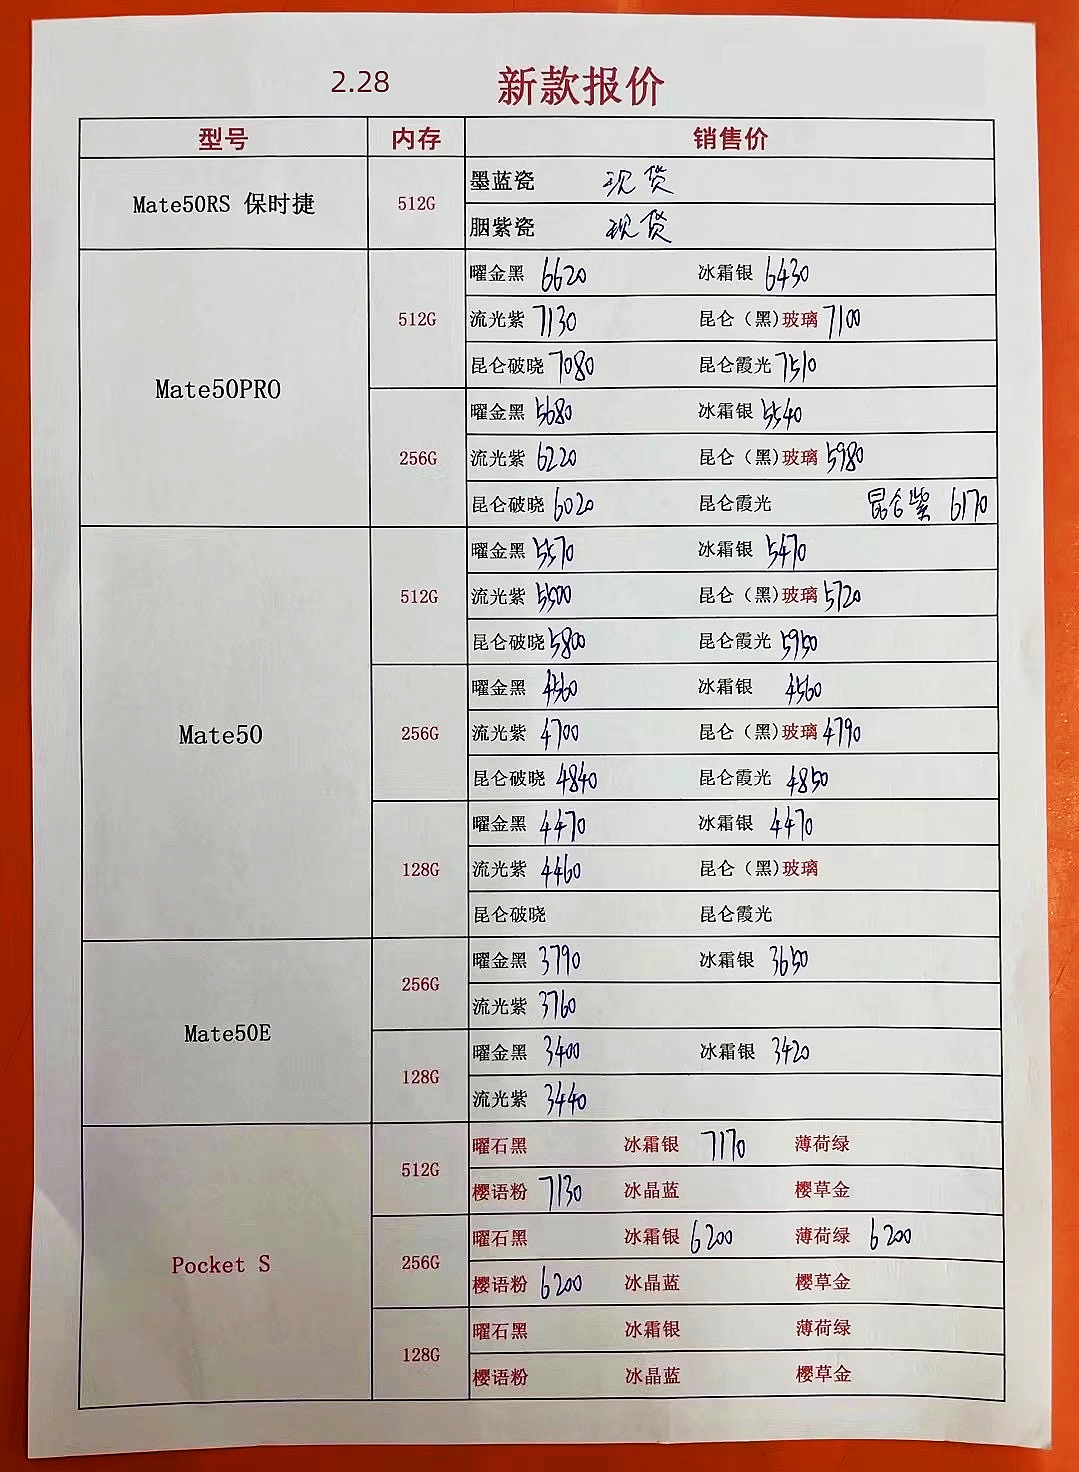 2.28 新款报价
型号 内存 销售价
Mate50RS 保时捷 512G 墨蓝瓷 现货
胭紫瓷 现货
Mate50PRO 512G 曜金黑 6620 冰霜银 6430
流光紫 7130 昆仑（黑)玻璃 7100
昆仑破晓 7080 昆仑霞光 7510
256G 曜金黑 5680 冰霜银 5540
流光紫 6220 昆仑（黑)玻璃 5980
昆仑破晓 6020 昆仑霞光 昆仑紫 6170
Mate50 512G 曜金黑 5570 冰霜银 5470
流光紫 5500 昆仑（黑)玻璃 5720
昆仑破晓 5800 昆仑霞光 5950
256G 曜金黑 4560 冰霜银 4560
流光紫 4700 昆仑（黑)玻璃 4790
昆仑破晓 4840 昆仑霞光 4850
128G 曜金黑 4470 冰霜银 4470
流光紫 4460 昆仑（黑)玻璃
昆仑破晓 昆仑霞光
Mate50E 256G 曜金黑 3790 冰霜银 3650
流光紫 3760
128G 曜金黑 3400 冰霜银 3420
流光紫 3440
Pocket S 512G 曜石黑 冰霜银 7170 薄荷绿
樱语粉 7130 冰晶蓝 樱草金
256G 曜石黑 冰霜银 6200 薄荷绿 6200
樱语粉 6200 冰晶蓝 樱草金
128G 曜石黑 冰霜银 薄荷绿
樱语粉 冰晶蓝 樱草金